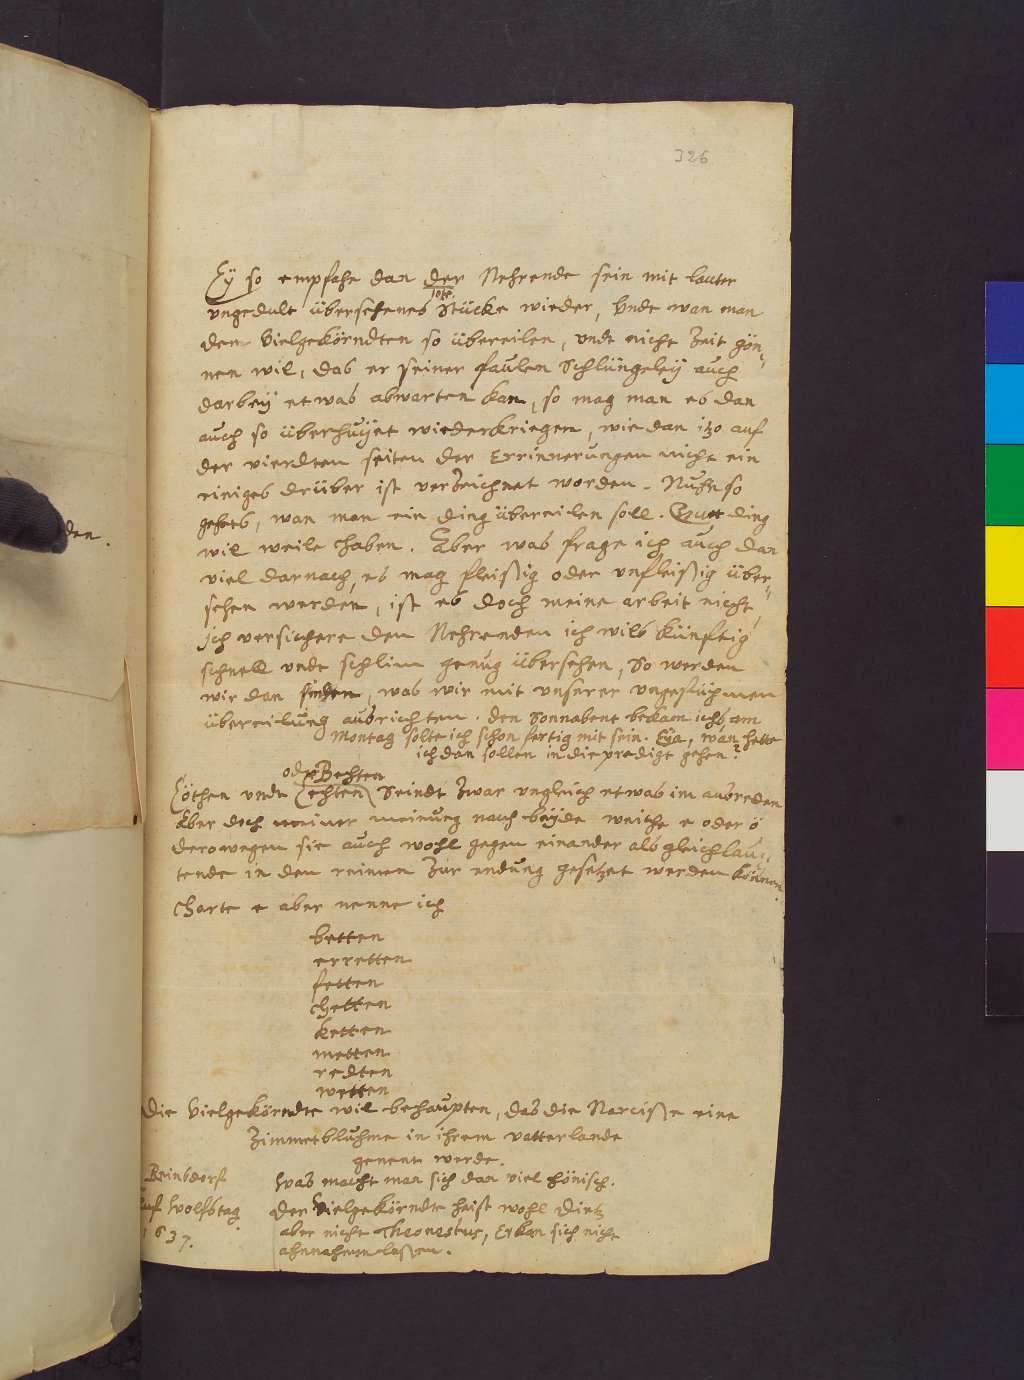 326
Eÿ so empfahe dan der Nehrende sein mit lauter
ungedult übersehenes Stücke wieder, Undt wan man
dem Vielgekörndten so übereilen, undt nicht Zeit gön-
nen wil, das er seiner faulen Schlüngeleÿ auch
darbeÿ etwas abwarten kan, so mag man es dan
auch so überhuÿet wiederkriegen, wie dan itzo auf
der vierdten seiten der Errinnerungen nicht ein
einiges drüber ist verzeichnet worden. Nuhn so
gehets, wan man ein ding übereilen soll. Gutt ding
wil weile haben. Aber was frage ich auch dan
viel darnach, es mag fleißig oder unfleißig über-
sehen werden, ist es doch meine arbeit nicht,
Ich versichere den Nehrenden ich wils künftig
schnell undt schlim genug übersehen, So werden
wir dan sehen, was wir mit unserer ungestühmen
übereilung ausrichten. den Sonnabent bekam ichs, am
Montag solte ich schon fertig mit sein. Eÿa, wan hette
ich dan sollen in die predigt gehen?
oder Bechten
Cöthen undt Echten Seindt Zwar ungleich etwas im ausreden
Aber doch meiner meinung nach beÿde weiche e oder ö
derowegen sie auch wohl gegen einander als gleichlau-
tende in den reimen Zur endung gesetzet werden können.
Harte e aber nenne ich
betten
erretten
fetten
hetten
ketten
metten
redten
wetten
Die Vielgekörndte wil behaupten, das die Narcisse eine
Zimmetbluhme in ihrem vatterlande
genent werde.
Was macht man sich dan viel hönisch.
Reinsdorf
auf Wolfstag
1637.
Der Vielgekörndte heist wohl Dietz
aber nicht Theonestus, Er kan sich nicht
ahnnahemen lassen.